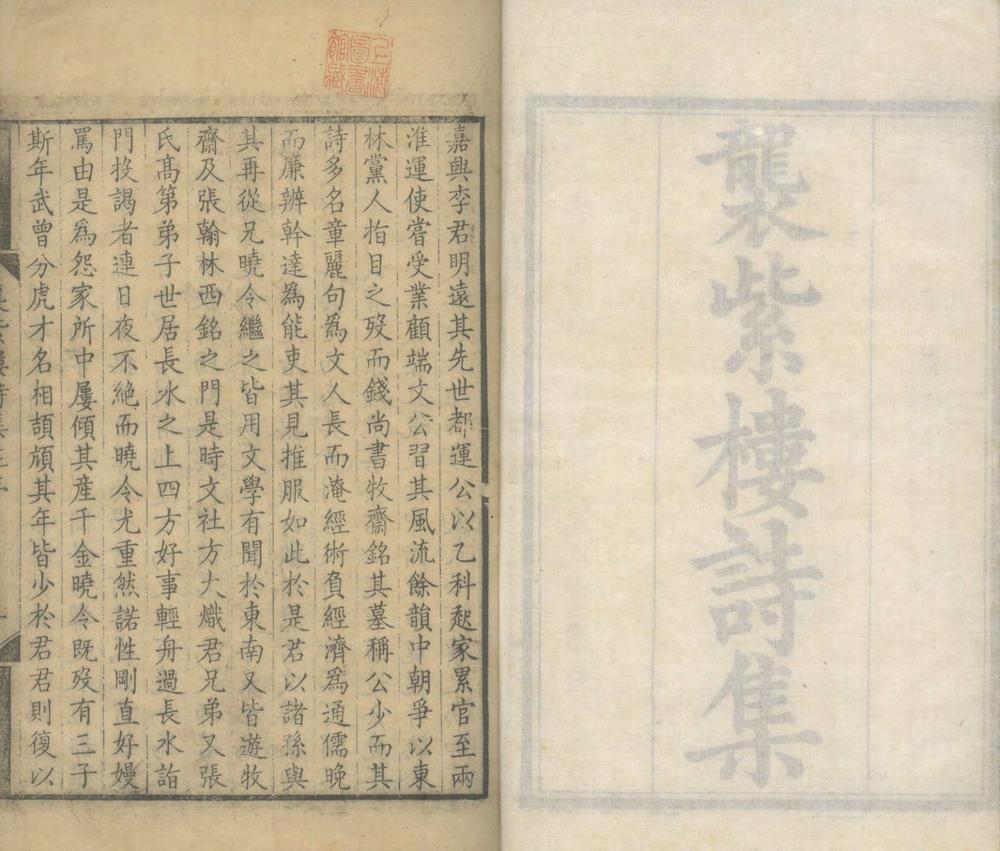 襲紫樓詩集
上海圖書館藏
嘉興李君明遠其先世都運公以乙科起家累官至兩
淮運使嘗受業顧端文公習其風流餘韻中朝爭以東
林黨人指目之歿而錢尚書牧齋銘其墓稱公少而其
詩多名章麗句為文人長而淹經術負經濟為通儒晚
而廉辨幹達為能吏其見推服如此於是君以諸孫與
其再從兄曉令繼之皆用文學有聞於東南又皆遊牧
齋及張翰林西銘之門是時文社方大熾君兄弟又張
氏高第弟子世居長水之上四方好事輕舟過長水詣
門投謁者連日夜不絕而曉令尤重然諾性剛直好嫚
罵由是為怨家所中屢傾其產千金曉令既歿有三子
斯年武曾分虎才名相頡頏其年皆少於君君則復以